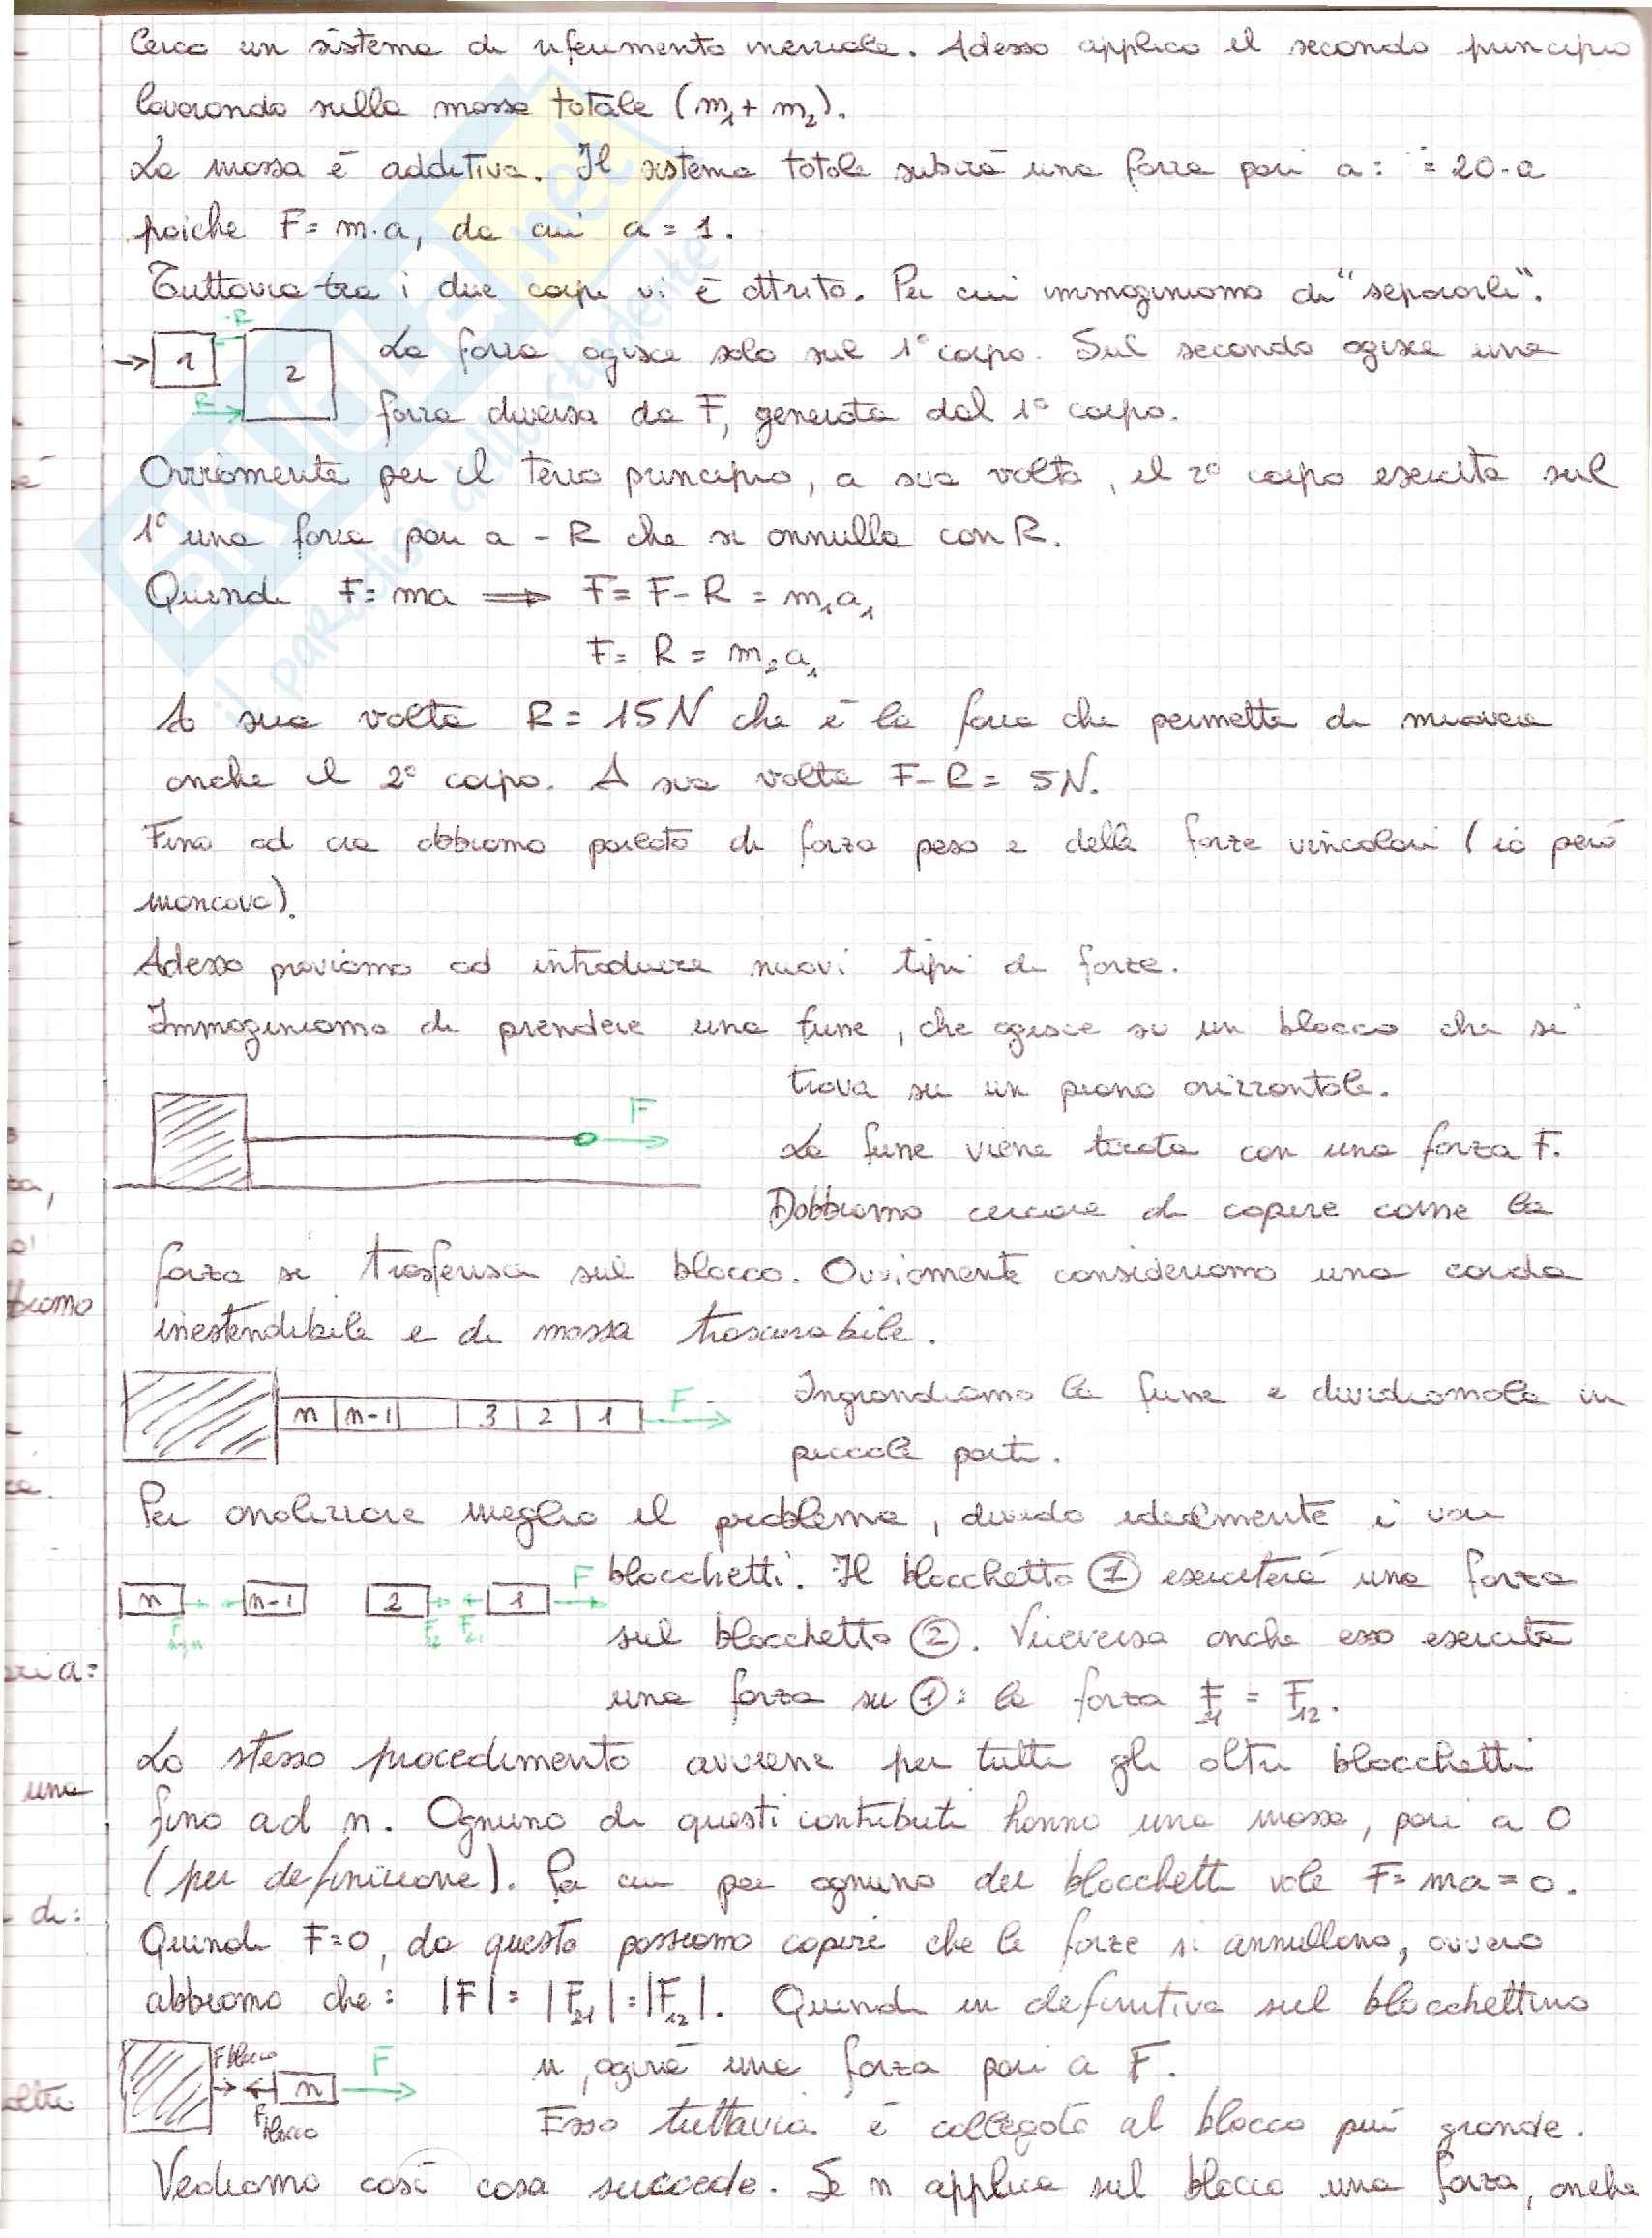 Cerco un sistema di riferimento inerziale. Adesso applico il secondo principio
lavorando sulla massa totale (m₁ + m₂).
La massa è additiva. Il sistema totale subirà una forza pari a: = 20·a
poiche F = m·a, da cui a = 1.
Tuttavia tra i due corpi vi è attrito. Per cui immaginiamo di "separarli".
-R
1
2
R
La forza agisce solo sul 1° corpo. Sul secondo agisce una
forza diversa da F, generata dal 1° corpo.
Ovviamente per il terzo principio, a sua volta, il 2° corpo esercita sul
1° una forza pari a - R che si annulla con R.
Quindi F = ma ⟹ F = F - R = m₁a₁
F = R = m₂a₁
A sua volta R = 15N che è la forza che permette di muovere
anche il 2° corpo. A sua volta F - R = 5N.
Fino ad ora abbiamo parlato di forza peso e delle forze vincolari (io però
mancavo).
Adesso proviamo ad introdurre nuovi tipi di forze.
Immaginiamo di prendere una fune, che agisce su un blocco che si
trova su un piano orizzontale.
F
La fune viene tirata con una forza F.
Dobbiamo cercare di capire come la
forza si trasferisca sul blocco. Ovviamente consideriamo una corda
inestendibile e di massa trascurabile.
n n-1 3 2 1 F
Ingrandiamo la fune e dividiamola in
piccole parti.
Per analizzare meglio il problema, divido idealmente i vari
n n-1 2 1 F
F₁₂ F₂₁
blocchetti. Il blocchetto ① eserciterà una forza
sul blocchetto ②. Viceversa anche esso esercita
una forza su ①: la forza F₂₁ = F₁₂.
Lo stesso procedimento avviene per tutti gli altri blocchetti
fino ad n. Ognuno di questi contributi hanno una massa, pari a 0
(per definizione). Per cui per ognuno dei blocchetti vale F = ma = 0.
Quindi F = 0, da questo possiamo capire che le forze si annullano, ovvero
abbiamo che: |F| = |F₂₁| = |F₁₂|. Quindi in definitiva sul blocchettino
F blocco
n
F
F blocco
n, agirà una forza pari a F.
Esso tuttavia è collegato al blocco più grande.
Vediamo così cosa succede. Se n applica sul blocco una forza, anche
SKUOLA.net
il paradiso dello studente